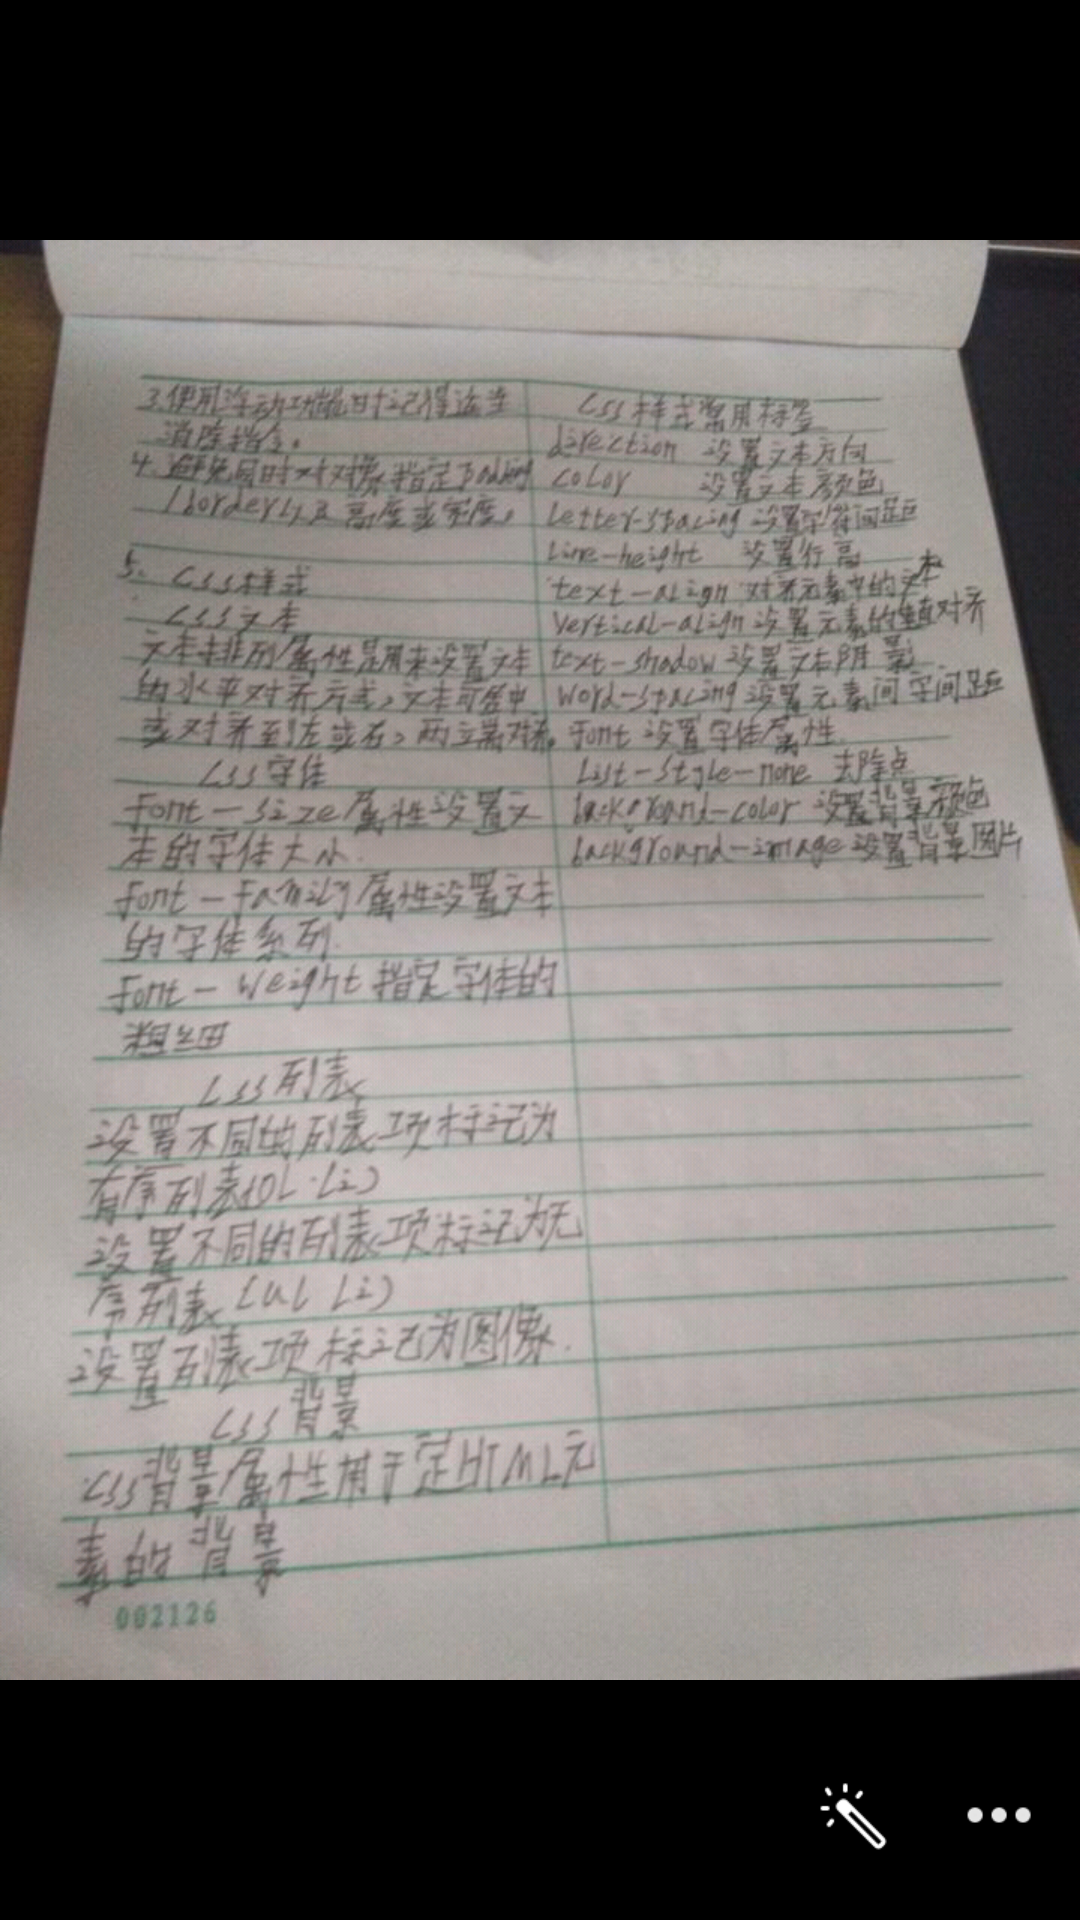 3.使用浮动功能时记得适当
消除指令。
4.避免同时对对象指定Pading
(border),及高度或宽度。
5. CSS样式
CSS文本
文本排列属性是用来设置文本
的水平对齐方式,文本可居中
或对齐到左或右,两端对齐。
CSS字体
font-size属性设置文
本的字体大小.
font-family属性设置文本
的字体系列.
font-weight指定字体的
粗细
CSS列表
设置不同的列表项标记为
有序列表(OL·Li)
设置不同的列表项标记为无
序列表(UL Li)
设置列表项标记为图像.
CSS背景
CSS背景属性用于定HTML元
素的背景
CSS样式常用标签
direction 设置文本方向
color 设置文本颜色
Letter-spacing 设置字符间距
Line-height 设置行高
text-align 对齐元素中的文本
vertical-align 设置元素的垂直对齐
text-shadow 设置文本阴影
word-spacing 设置元素间字间距
font 设置字体属性.
List-style-none 去除点
background-color 设置背景颜色
background-image 设置背景图片
002126